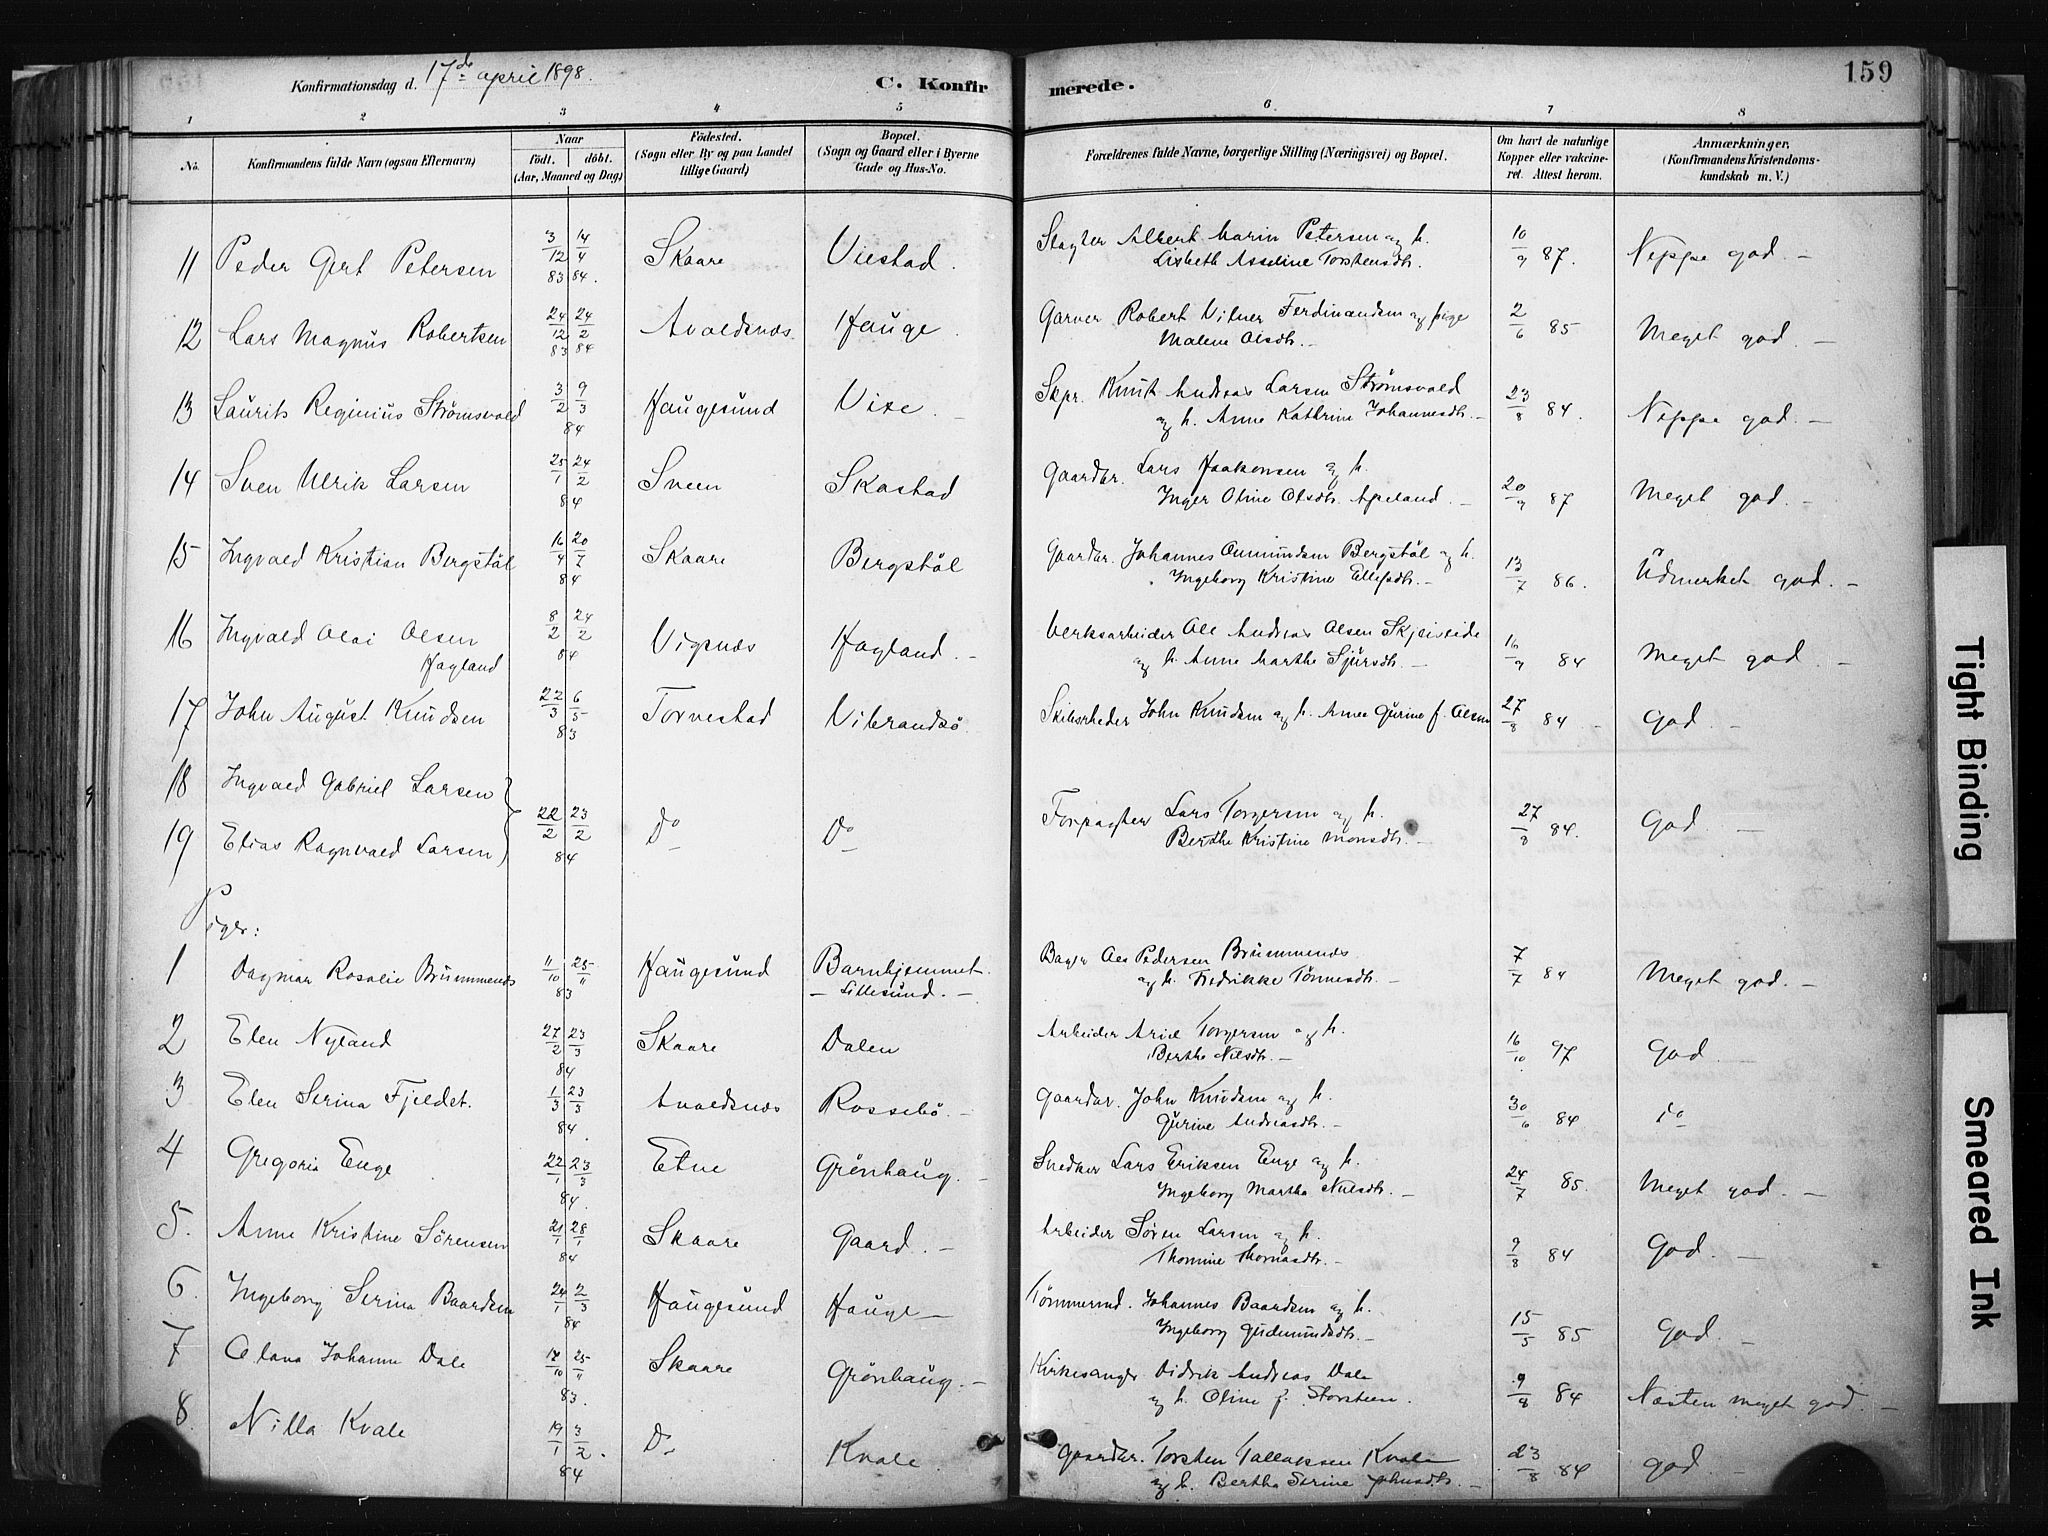 Konfirmationsdag d. 17de april 1898.
C. Konfirmerede.
159
1 2 3 4 5 6 7 8
No.
Konfirmandens fulde Navn (ogsaa Efternavn)
Naar
født. døbt.
(Aar, Maaned og Dag)
Fødested.
(Sogn eller By og paa Landet
tillige Gaard)
Bopæl.
(Sogn og Gaard eller i Byerne
Gade og Hus-No.
Forældrenes fulde Navne, borgerlige Stilling (Næringsvei) og Bopæl.
Om havt de naturlige
Kopper eller vakcine-
ret. Attest herom.
Anmærkninger.
(Konfirmandens Kristendoms-
kundskab m. V.)
11 Peder Gert Petersen 3/12 83 14/4 84. Skaare Viestad. Slagter Albert Marin Petersen og h. 10/9 87. Neppe god. —
Lisbeth Asseline Torstensdtr.
12 Lars Magnus Robertsen 24/12 83 24/2 84 Avaldsnæs Hauge. Garver Robert Vilner Ferdinandsen og pige 2/6 85 Meget god. —
Malene Olsdtr. —
13 Laurits Reginius Strømsvold 3/2 9/3 84 Haugesund Vixe. — Skpr. Knut Andreas Larsen Strømsvold 23/8 84. Neppe god. —
og h. Anne Kathrine Johannesdtr. —
14 Sven Ulrik Larsen 25/1 24/2 84 Sveen Skastad Gaardbr. Lars Haakonsen og h. 20/9 87 Meget god. —
Inger Oline Olsdtr. Apeland. —
15 Ingvald Kristian Bergstøl 16/4 20/7 84 Skaare Bergstøl Gaardbr. Johannes Aumundsen Bergstøl og h. 13/7 86. Udmerket god. —
Ingeborg Kristine Ellefsdtr. —
16 Ingvald Olai Olsen 8/2 24/2 84 Vigsnæs Hagland. — Verksarbeider Ole Andreas Olsen Skjeiseide 16/9 84 Meget god. —
Hagland
og h. Anne Marthe Sjursdtr. —
17 John August Knudsen 22/3 6/5 83 Torvestad Vibrandsø. Skibsrheder John Knudsen og h. Anne Gurine f. Olsen 27/8 84. — God. —
18 Ingvald Gabriel Larsen
19 Elias Ragnvald Larsen 22/2 23/2 84 Do Do Forpagter Lars Torgersen og h. 27/8 84. God —
Berthe Kristine Monsdtr. —
Piger:
1 Dagmar Rosalie Brummenæs 11/10 25/11 83 Haugesund Barnhjemmet. Bager Ole Pedersen Brummenæs 7/7 84 Meget god. —
— Lillesund. — og h. Fredrikke Tønnesdtr. —
2 Elen Nyland 27/2 23/3 84 Skaare Dalen Arbeider Arild Torgersen og h. 16/10 97 God —
Berthe Nilsdtr. —
3 Elen Serina Fjeldet. 1/3 23/3 84. Avaldsnæs Rossebø. — Gaardbr. John Knudsen og h. 30/6 84. do
Gurine Andreasdtr. —
4 Gregoria Enge 22/1 23/3 84. Etne Grønhaug. — Snedker Lars Eriksen Enge og h. 24/7 85. Meget god. —
Ingeborg Martha Nilsdtr. —
5. Anne Kristine Sørensen 21/1 28/1 84 Skaare Gaard. — Arbeider Søren Larsen og h. 9/8 84 God. —
Thomine Thomasdtr. —
6. Ingeborg Serina Baardsen 24/1 2/3 84 Haugesund Hauge — Tømmermd. Johannes Baardsen og h. 15/5 85 God. —
Ingeborg Gudmundsdtr. —
7 Olava Johanne Dale 12/10 25/11 83. Skaare Grønhaug. — Kirkesanger Didrik Andreas Dale 9/8 84 Næsten meget god. —
og h. Oline f. Storsteen.
8 Nilla Kvale 19/1 3/2. 84 Do Kvale. Gaardbr. Torsten Tallaksen Kvale 23/8 84 God —
og h. Bertha Serine Johnsdtr. —
Tight Binding
Smeared Ink